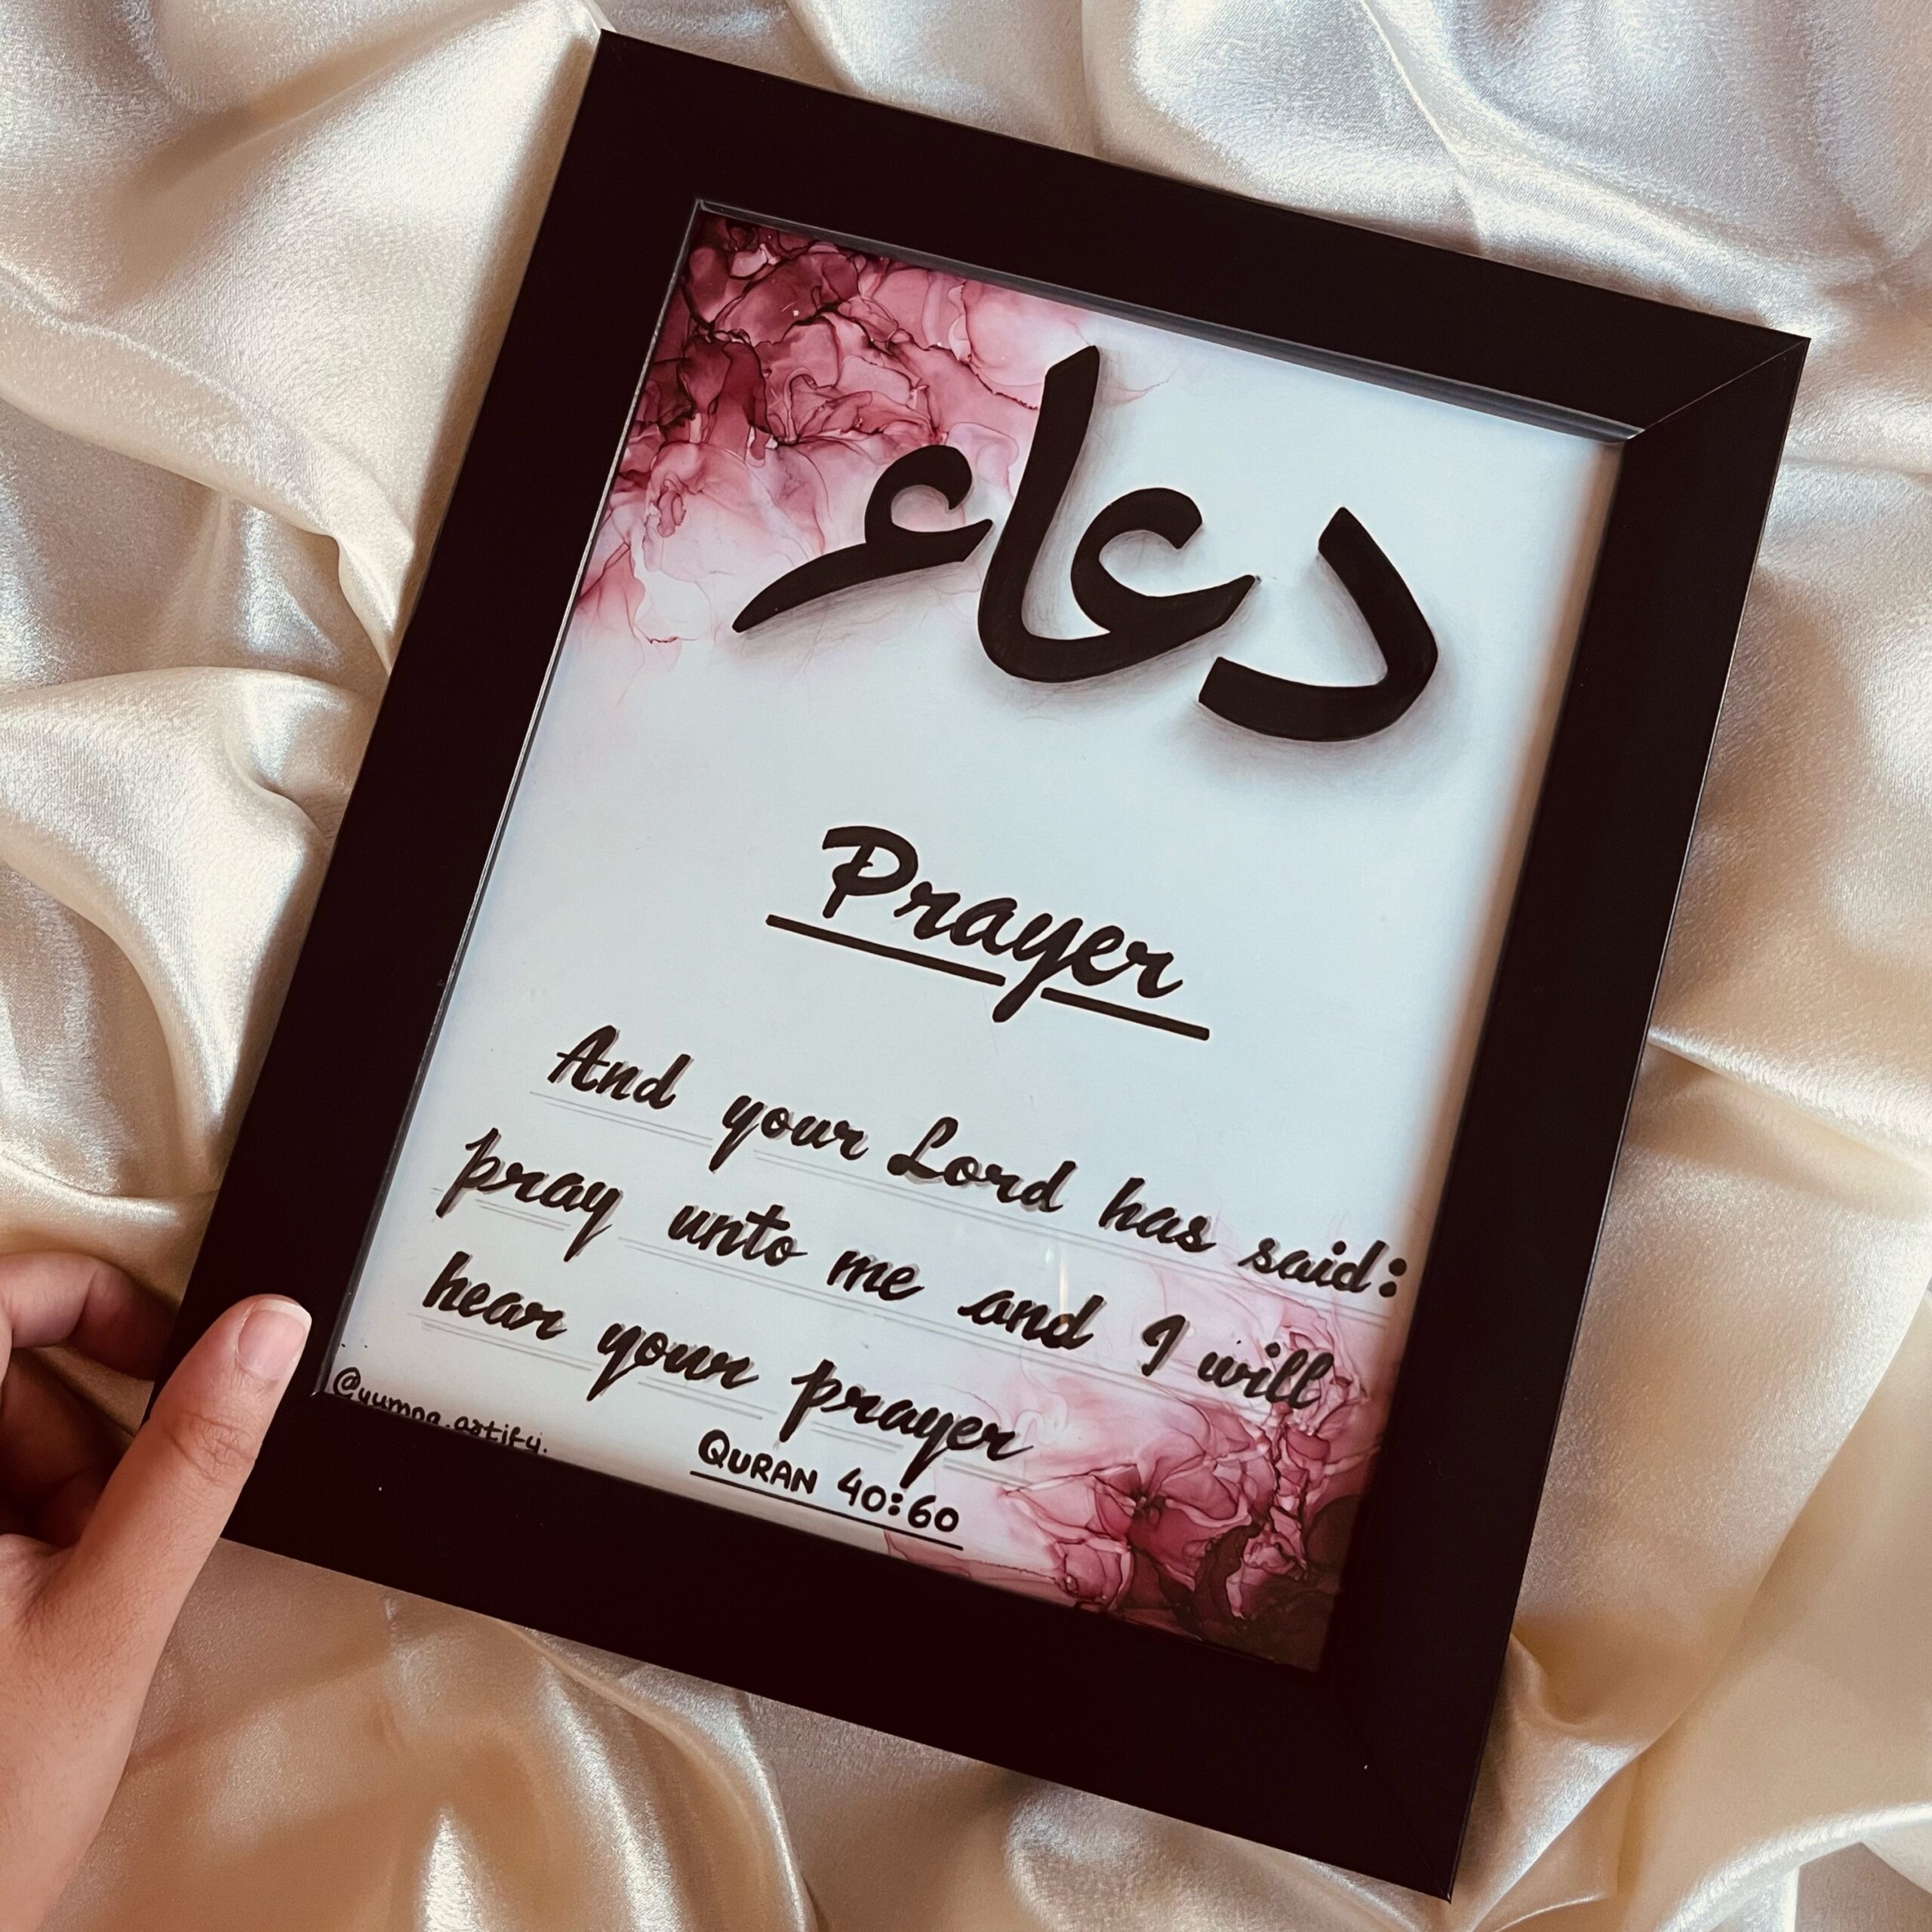 دعاء
Prayer
And your Lord has said:
pray unto me and I will
hear your prayer
QURAN 40:60